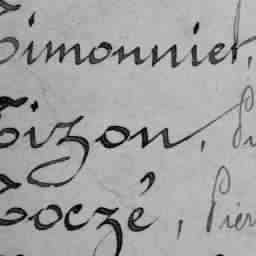 Timonnier,
Tizon,
Toczé, Pier